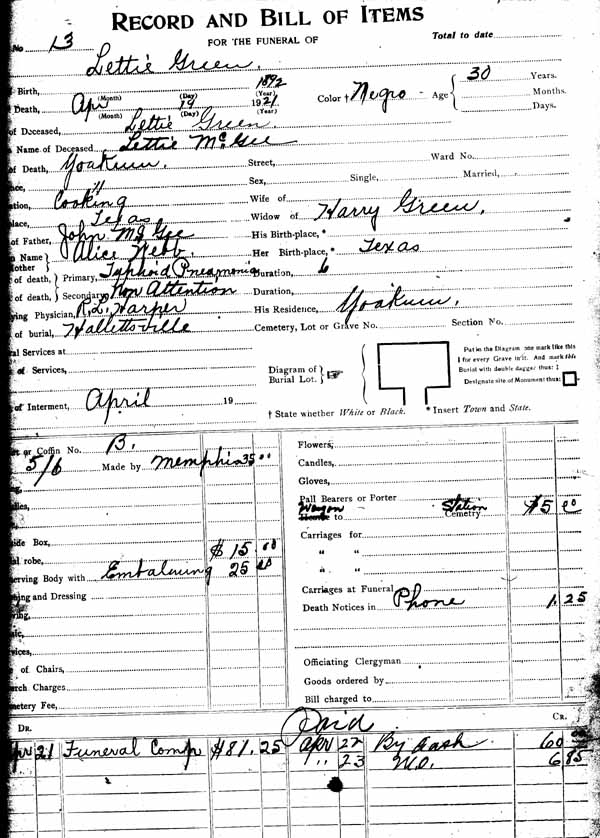 RECORD AND BILL OF ITEMS
FOR THE FUNERAL OF
Total to date
No 13
Lettie Green.
f Birth, 1892
(Month) (Day) (Year)
Death, Apr 19 1921
(Month) (Day) (Year)
Color † Negro
Age 30 Years.
Months.
Days.
of Deceased, Lettie Green
n Name of Deceased, Lettie McGee
of Death, Yoakum. Street, Ward No.
nce, " Sex, Single, Married,
ation, Cooking Wife of
lace, Texas Widow of Harry Green,
of Father, John McGee His Birth-place, *
n Name Mother Alice Webb Her Birth-place, * Texas
of death, Primary, Typhoid Pneamonia Duration, 6
of death, Secondary, Non Attention Duration,
ying Physician, R.L. Harper His Residence, Yoakum.
of burial, Hallettsville Cemetery, Lot or Grave No. Section No.
al Services at
of Services,
Diagram of Burial Lot.
Put in the Diagram one mark like this
I for every Grave in it. And mark this
Burial with double dagger thus: ‡
Designate site of Monument thus:
of Interment, April 19
† State whether White or Black. * Insert Town and State.
et or Coffin No. B.
5/6 Made by Memphis 35 00
ide Box,
al robe, $ 15.00
erving Body with Embalming 25 00
hing and Dressing
of Chairs,
rch Charges
metery Fee,
Flowers,
Candles,
Gloves,
Pall Bearers or Porter
Wagon to Station Cemetery $5 00
Carriages for
" "
" "
Carriages at Funeral
Death Notices in Phone 1.25
Officiating Clergyman
Goods ordered by
Bill charged to
DR. Paid CR.
Apr 21 Funeral Comp $81.25 Apr 22 By Cash 60
" 23 M.O. 6 85